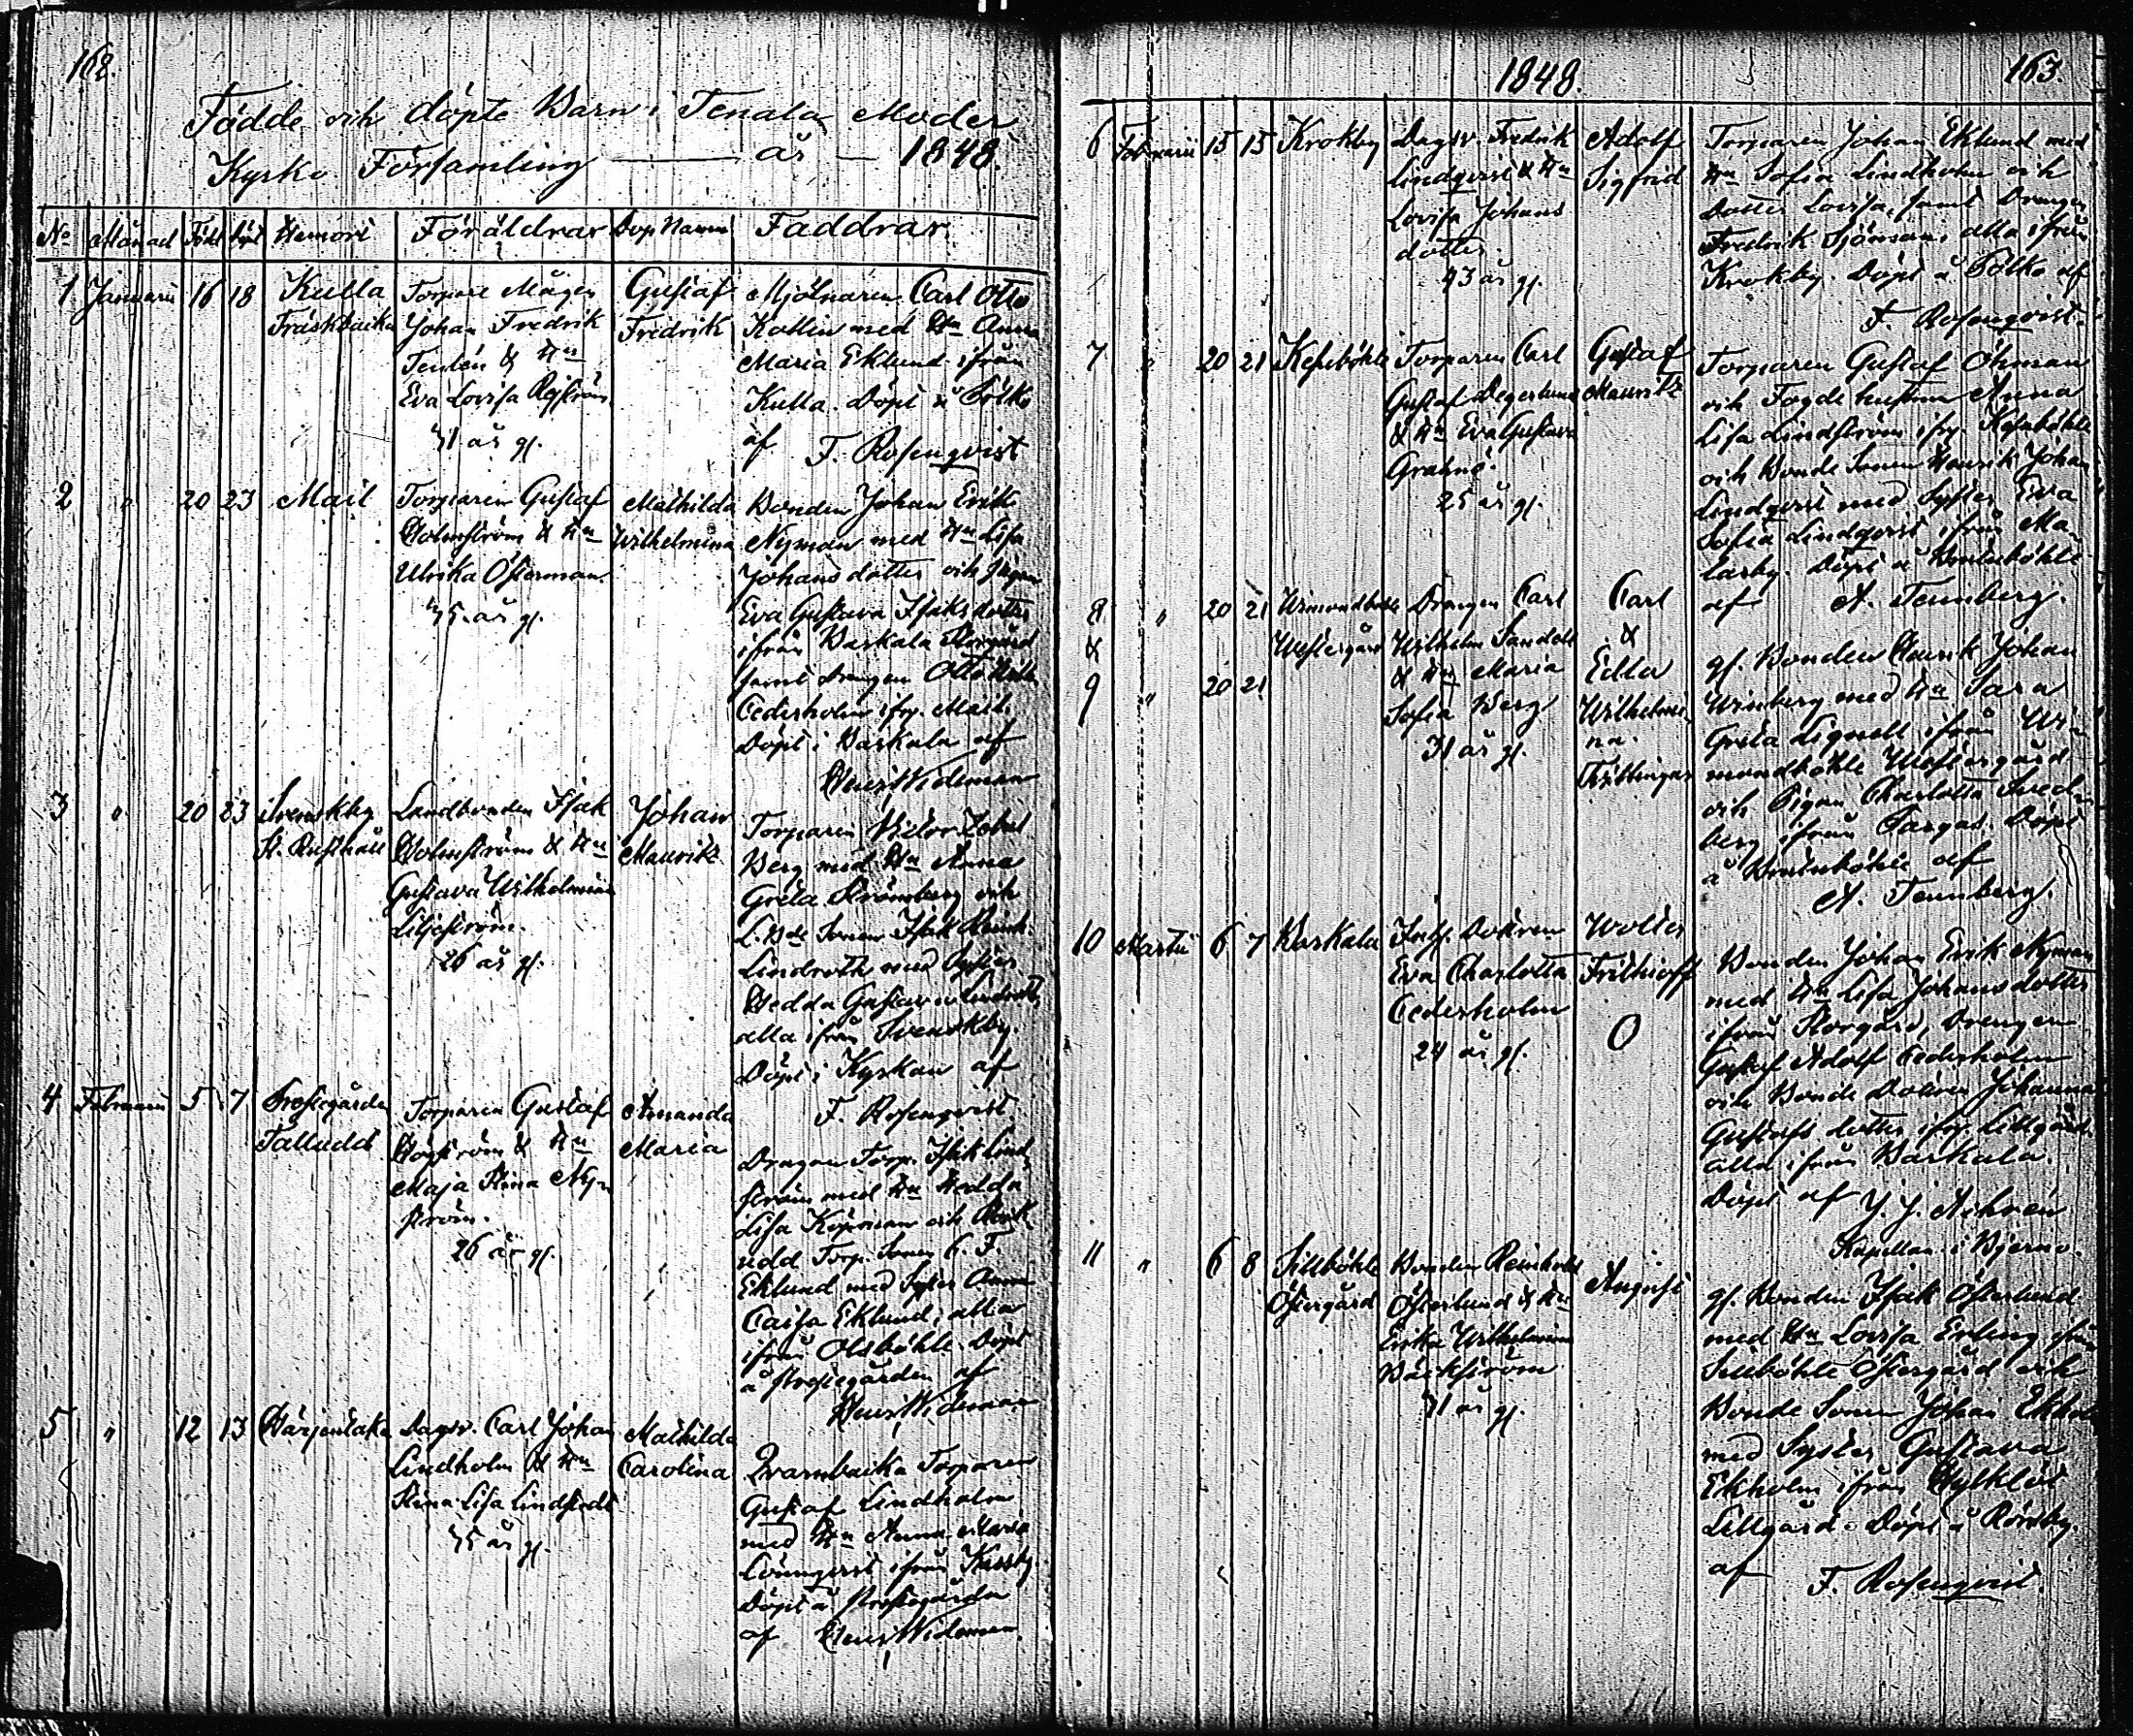 162.
Födde och döpte Barn i Tenala Moder
Kyrko Församling — år — 1848.
No Månad Född döpt Hemort Föräldrar Dop Namn Faddrar
1 Januarii 16 18 Kulla
Träskbacka
Torpare Mågen
Johan Fredrik
Tenlén & Hu
Eva Lovisa
31 år gl.
Gustaf
Fredrik
Mjölnaren Carl Otto
Kollin med Hu Anna
Maria Eklund ifrån
Kulla. Döpt å Fölkö
af F. Rosenqvist
2 " 20 23 Mail
Torparen Gustaf
Holmström & Hu
Ulrika Österman
35 år gl.
Mathilda
Wilhelmina
Bonden Johan Erik
Nyman med Hu Lisa
Johansdotter och pigan
Eva Gustava Isaksdotter
ifrån Baskala Storgård
samt drengen Otto
Cederholm ifr. Mail.
Döpt i Baskala af
Henr. Wideman
3 " 20 23 Svenskby
St. Rusthåll
Landbonden Isak
Holmström & Hu
Gustava Wilhelmina
Liljeström.
26 år gl.
Johan
Mauritz
Torparen Victor
Berg med Hu Anna
Greta Strömberg och
L. Bde Sonen Isak
Lindroth med Syster
Hedda Gustava Lindroth,
alla ifrån Svenskby.
Döpt i Kyrkan af
F. Rosenqvist.
4 Februarii 5 7 Prestegården
Talludd
Torparen Gustaf
Högström & Hu
Maja Stina Ny-
ström.
26 år gl.
Amanda
Maria
Dragon Torp. Isak Lind-
ström med Hu Hedda
Lisa Köpman och
udd Torp. Sonen C. F.
Eklund med Syster Anna
Caisa Eklund; alla
ifrån Olsböhle. Döpt
å Prestegården af
Henr. Wideman
5 " 12 13 Härjentaka
Dagsv. Carl Johan
Lindholm & Hu
Stina Lisa Lindstedt
35 år gl.
Mathilda
Carolina
Qvarnbacka Torparen
Gustaf Lindholm
med Hu Anna Maria
Lönnqvist ifrån
Döpt å Prestegården
af Henr. Wideman.
1848. 163.
6 Februarii 15 15 Krokby
Dagsv. Fredrik
Lindqvist & Hu
Lovisa Johans
dotter
43 år gl.
Adolf
Sigfrid
Torparen Johan Eklund med
Hu Sofia Lindholm och
dotter Lovisa, samt Drengen
Fredrik Sjöman, alla ifrån
Krokby. Döpt å Fölkö af
F. Rosenqvist.
7 " 20 21 Kesuböhle
Torparen Carl
Gustaf Degerlund
& Hu Eva Gustava
Grahn.
25 år gl.
Gustaf
Mauritz
Torparen Gustaf Öhman
och Fogde hustrun Anna
Lisa Lindström ifr. Kesuböhle
och Bonde Sonen Henrik Johan
Lindqvist med Syster Eva
Sofia Lindqvist ifrån Ma-
larby. Döpt å
af A. Tennberg.
8 " 20 21
&
9 " 20 21
Westergård
Drengen Carl
Wilhelm Sandell
& Hu Maria
Sofia Berg
31 år gl.
Carl
&
Edla
Wilhelmi-
na.
Tvillingar
gl. Bonden Henrik Johan
Winberg med Hu Sara
Greta Lignell ifrån Wi-
mondböhle Westergård
och Pigan Charlotta
berg ifrån Pargas. Döpt
å af
A. Tennberg.
10 Martii 6 7 Baskala
Inhs. Dottren
Eva Charlotta
Cederholm
24 år gl.
Wolter
Frithioff
O
Bonden Johan Erik Nyman
med Hu Lisa Johansdotter
ifrån Storgård, Drengen
Gustaf Adolf Cederholm
och Bonde Dottren Johanna
Gustafs dotter ifr. Lillgård.
alla ifrån Baskala.
Döpt af J. J.
Kapellan i Bjerno.
11 " 6 8 Sillböhle
Östergård
Bonden Reinhold
Österlund & Hu
Erika Wilhelmina
Bäckström
31 år gl.
August
gl. Bonden Isak Österlund
med Hu Lovisa Erling ifrån
Sillböhle Östergård och
Bonde Sonen Johan Ekholm
med Syster Gustava
Ekholm ifrån
Lillgård. Döpt å Rörsby.
af F. Rosenqvist.